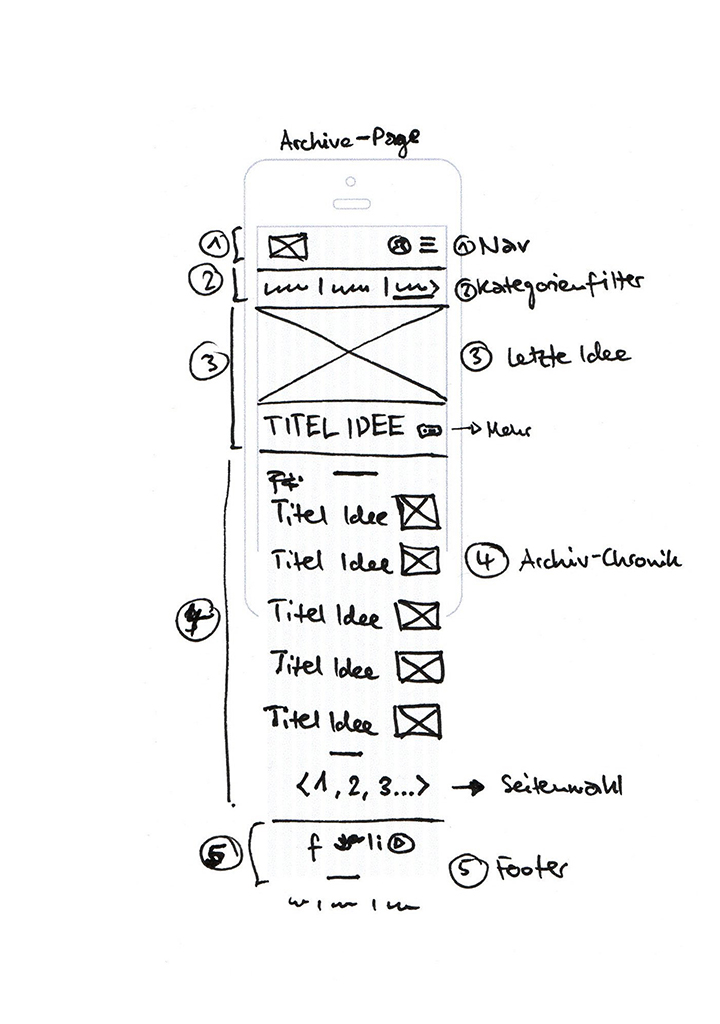 Archive-Page
① ① Nav
② ② Kategorienfilter
③ ③ Letzte Idee
TITEL IDEE → Mehr
Titel Idee
Titel Idee ④ Archiv-Chronik
④ Titel Idee
Titel Idee
Titel Idee
<1, 2, 3...> → Seitenwahl
⑤ f li
⑤ Footer